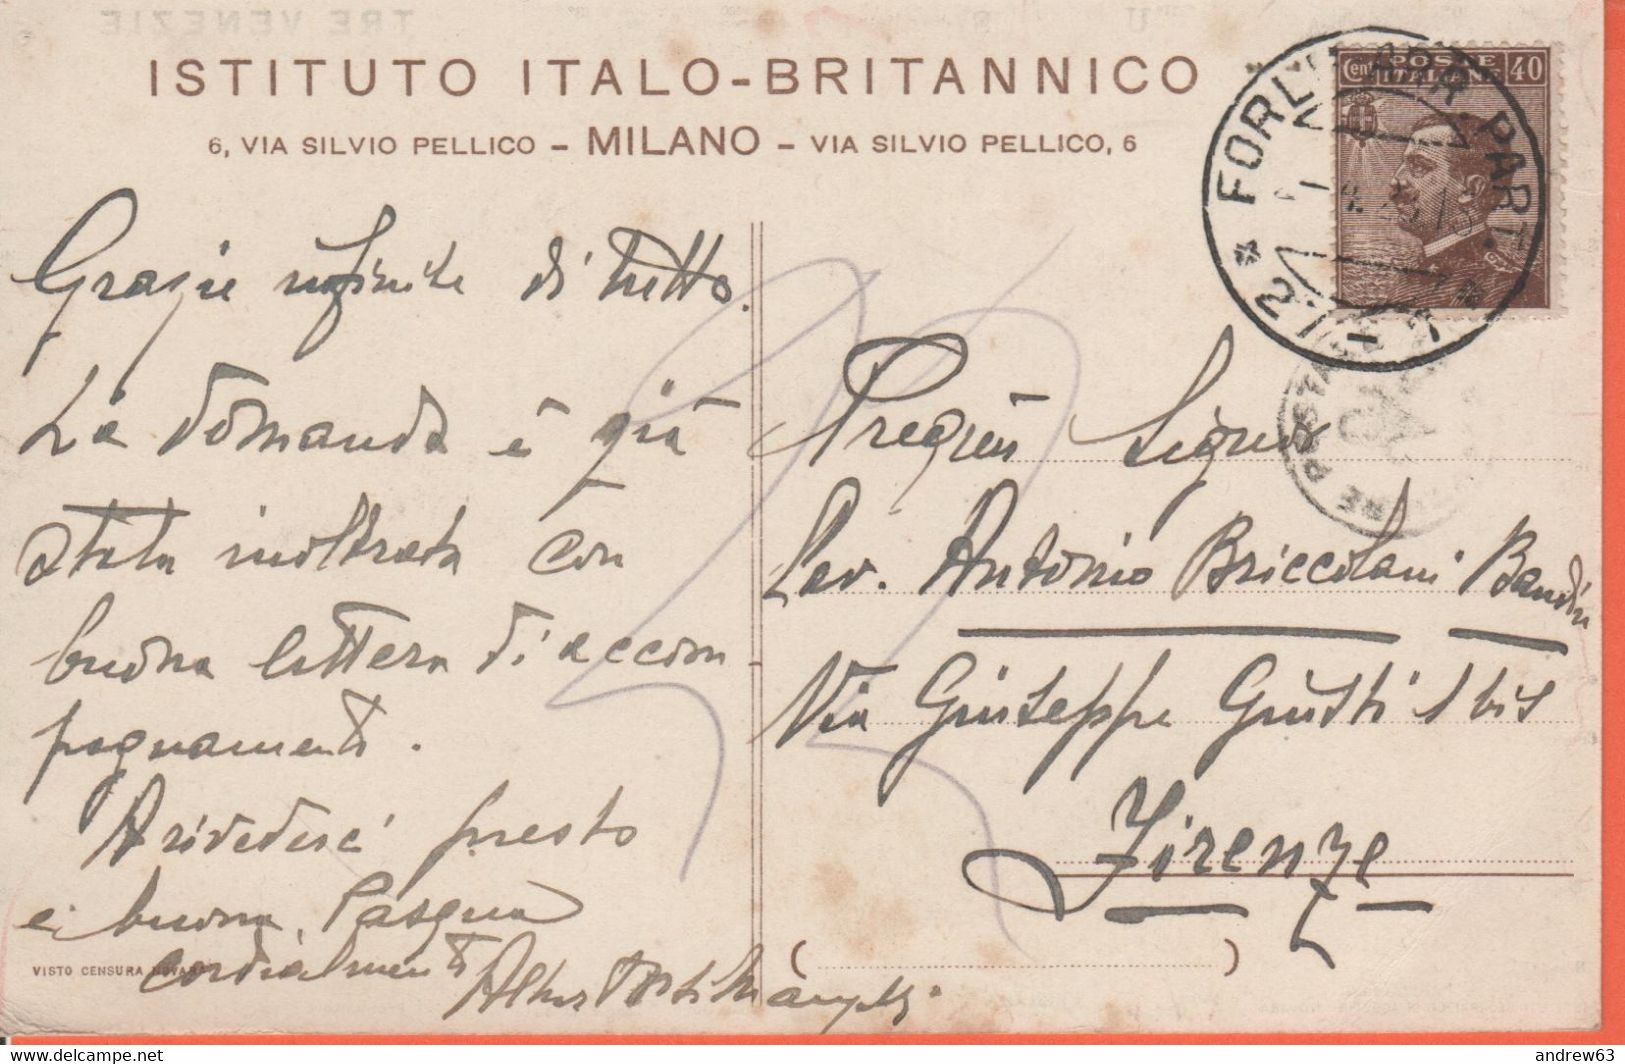 ISTITUTO ITALO-BRITANNICO
6, VIA SILVIO PELLICO – MILANO – VIA SILVIO PELLICO, 6
POSTE ITALIANE
Cent 40
FORLI ARR. PART.
TRE VENEZIE
Grazie infinite di tutto.
La domanda è già
stata inoltrata con
buona lettera di accom-
pagnamento.
Arivederci presto
e buona Pasqua
cordialmente
Pregmo Signor
Cav. Antonio Briccolani Bandini
Via Giuseppe Giusti 1 bis
Firenze
VISTO CENSURA NOVARA
( )
delcampe.net
andrew63